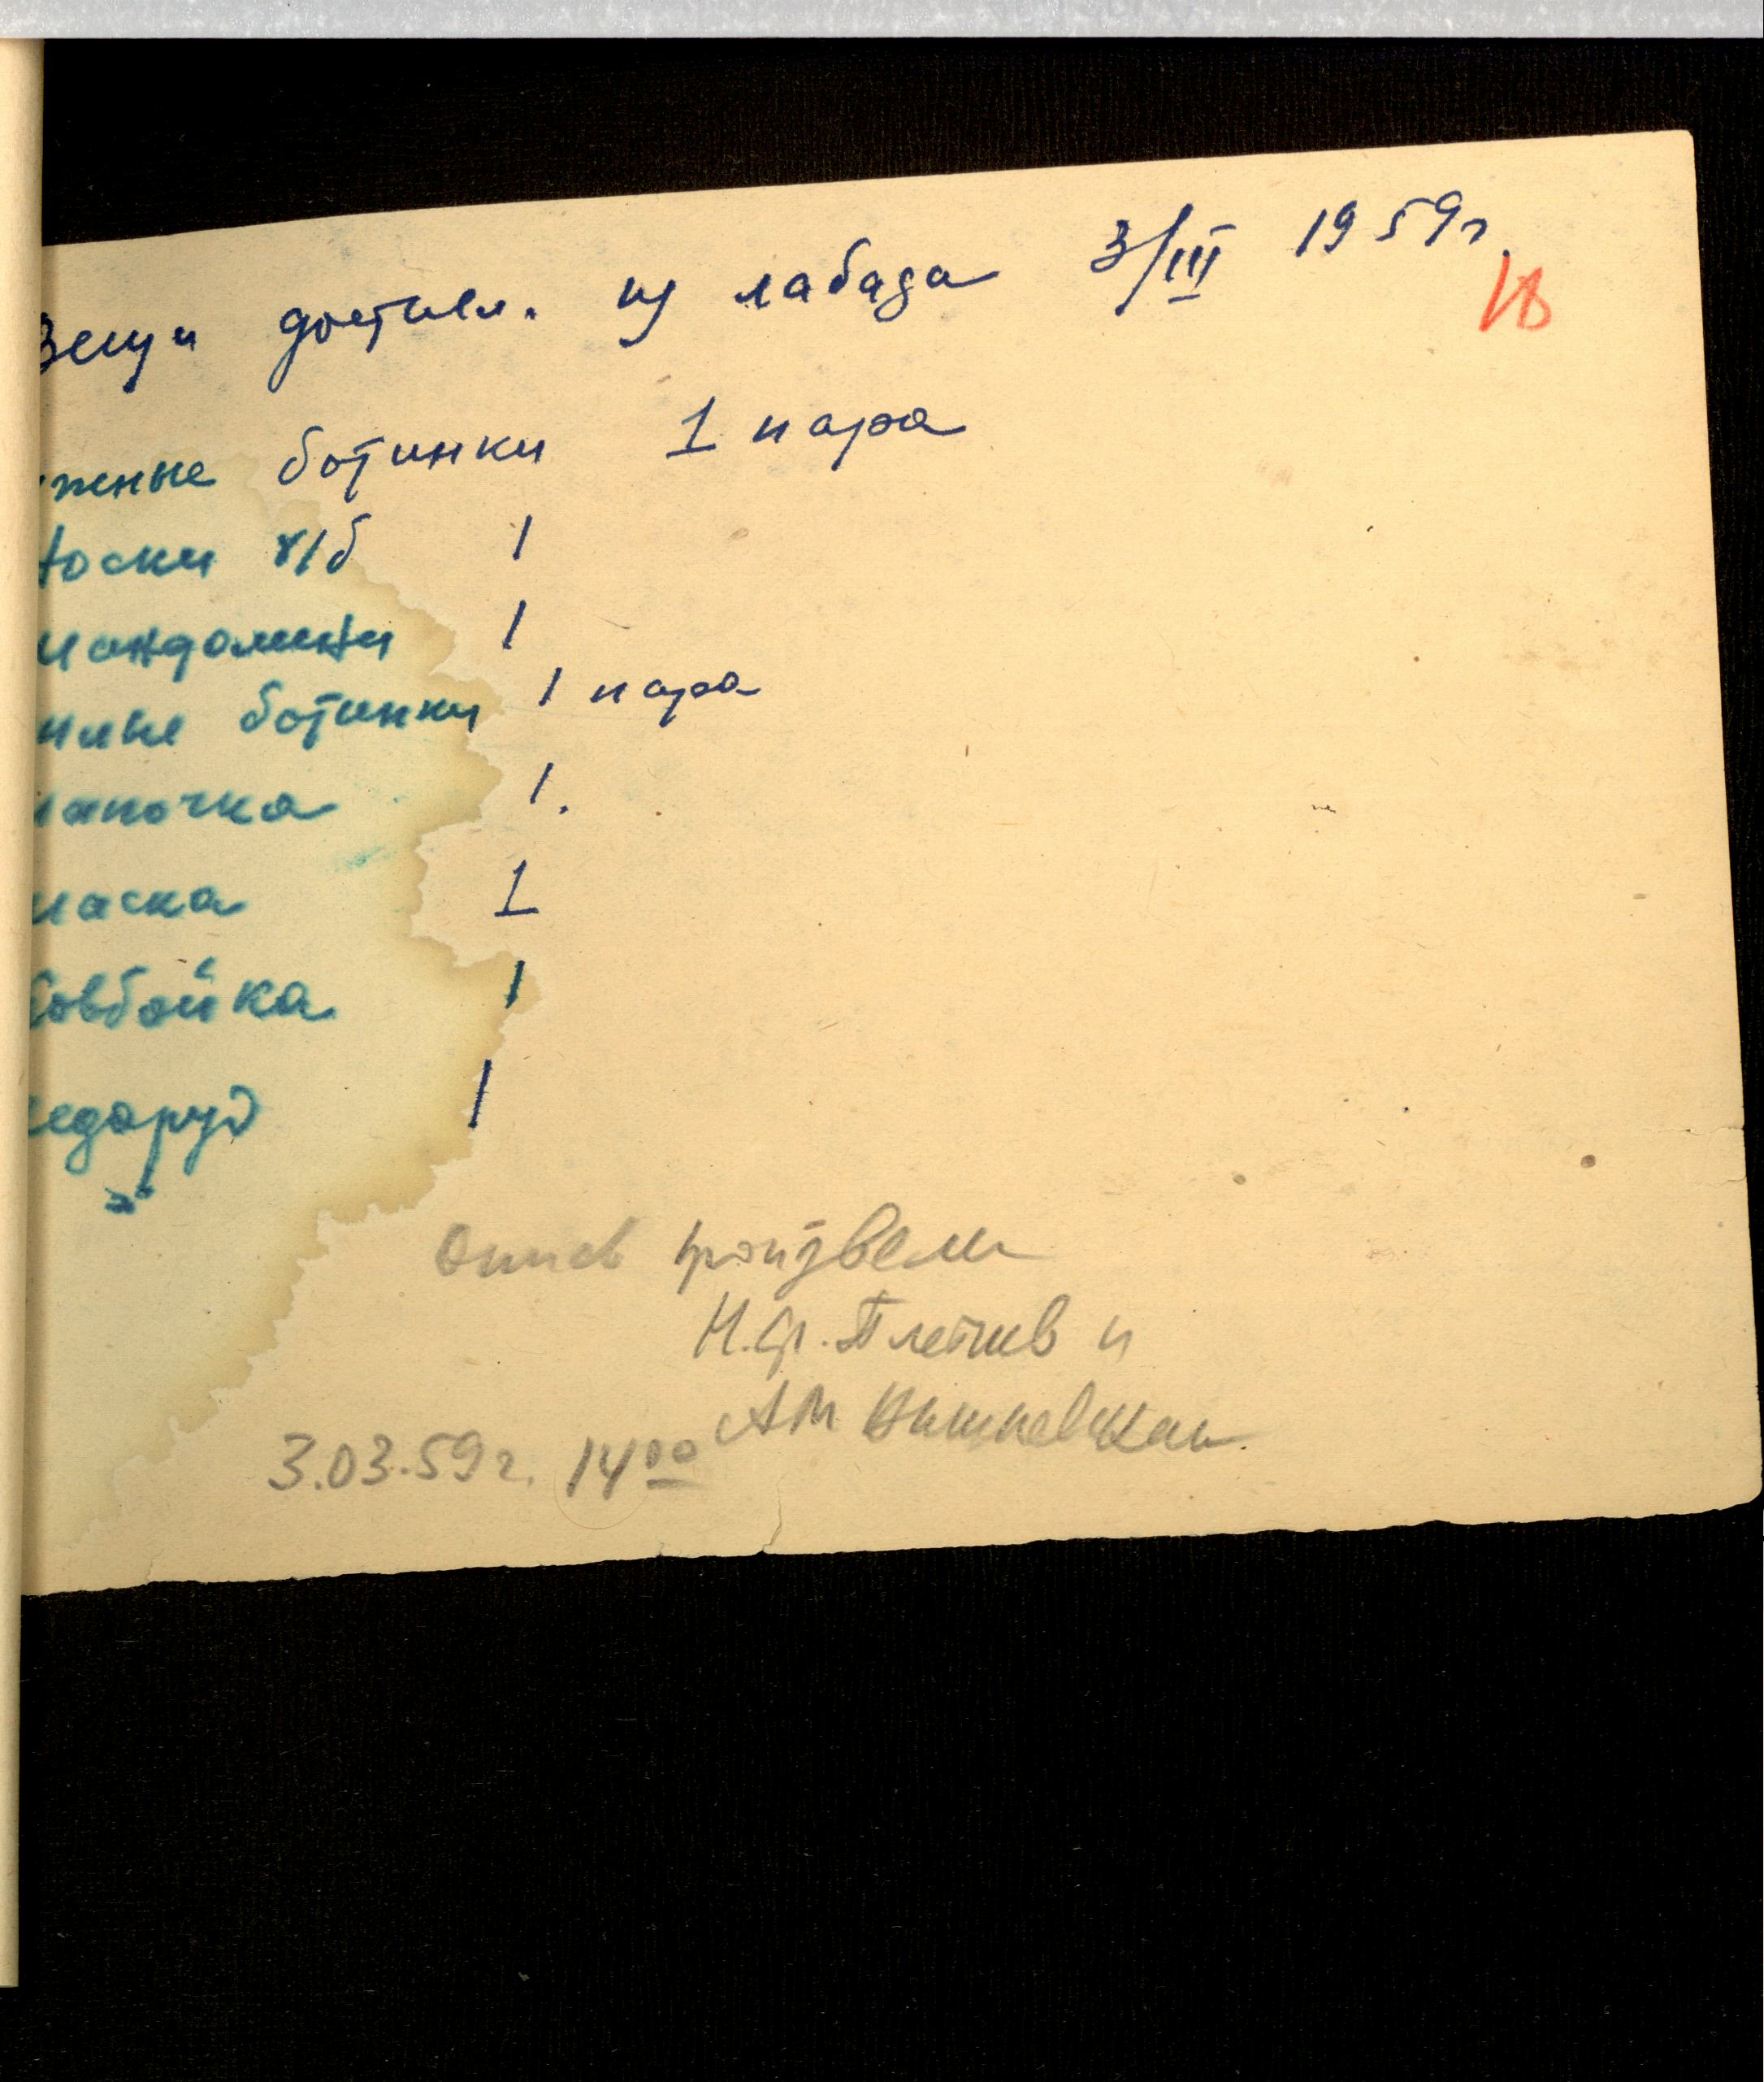 Вещи доставл. из лабаза 3/III 1959г.
18
жные ботинки 1 пара
Носки х/б 1
мандолина 1
ботинки 1 пара
апочка 1.
маска 1
Ковбойка 1
ледоруб 1
Опись произвели
И.
А М Вишневская
3.03.59г. 14 00